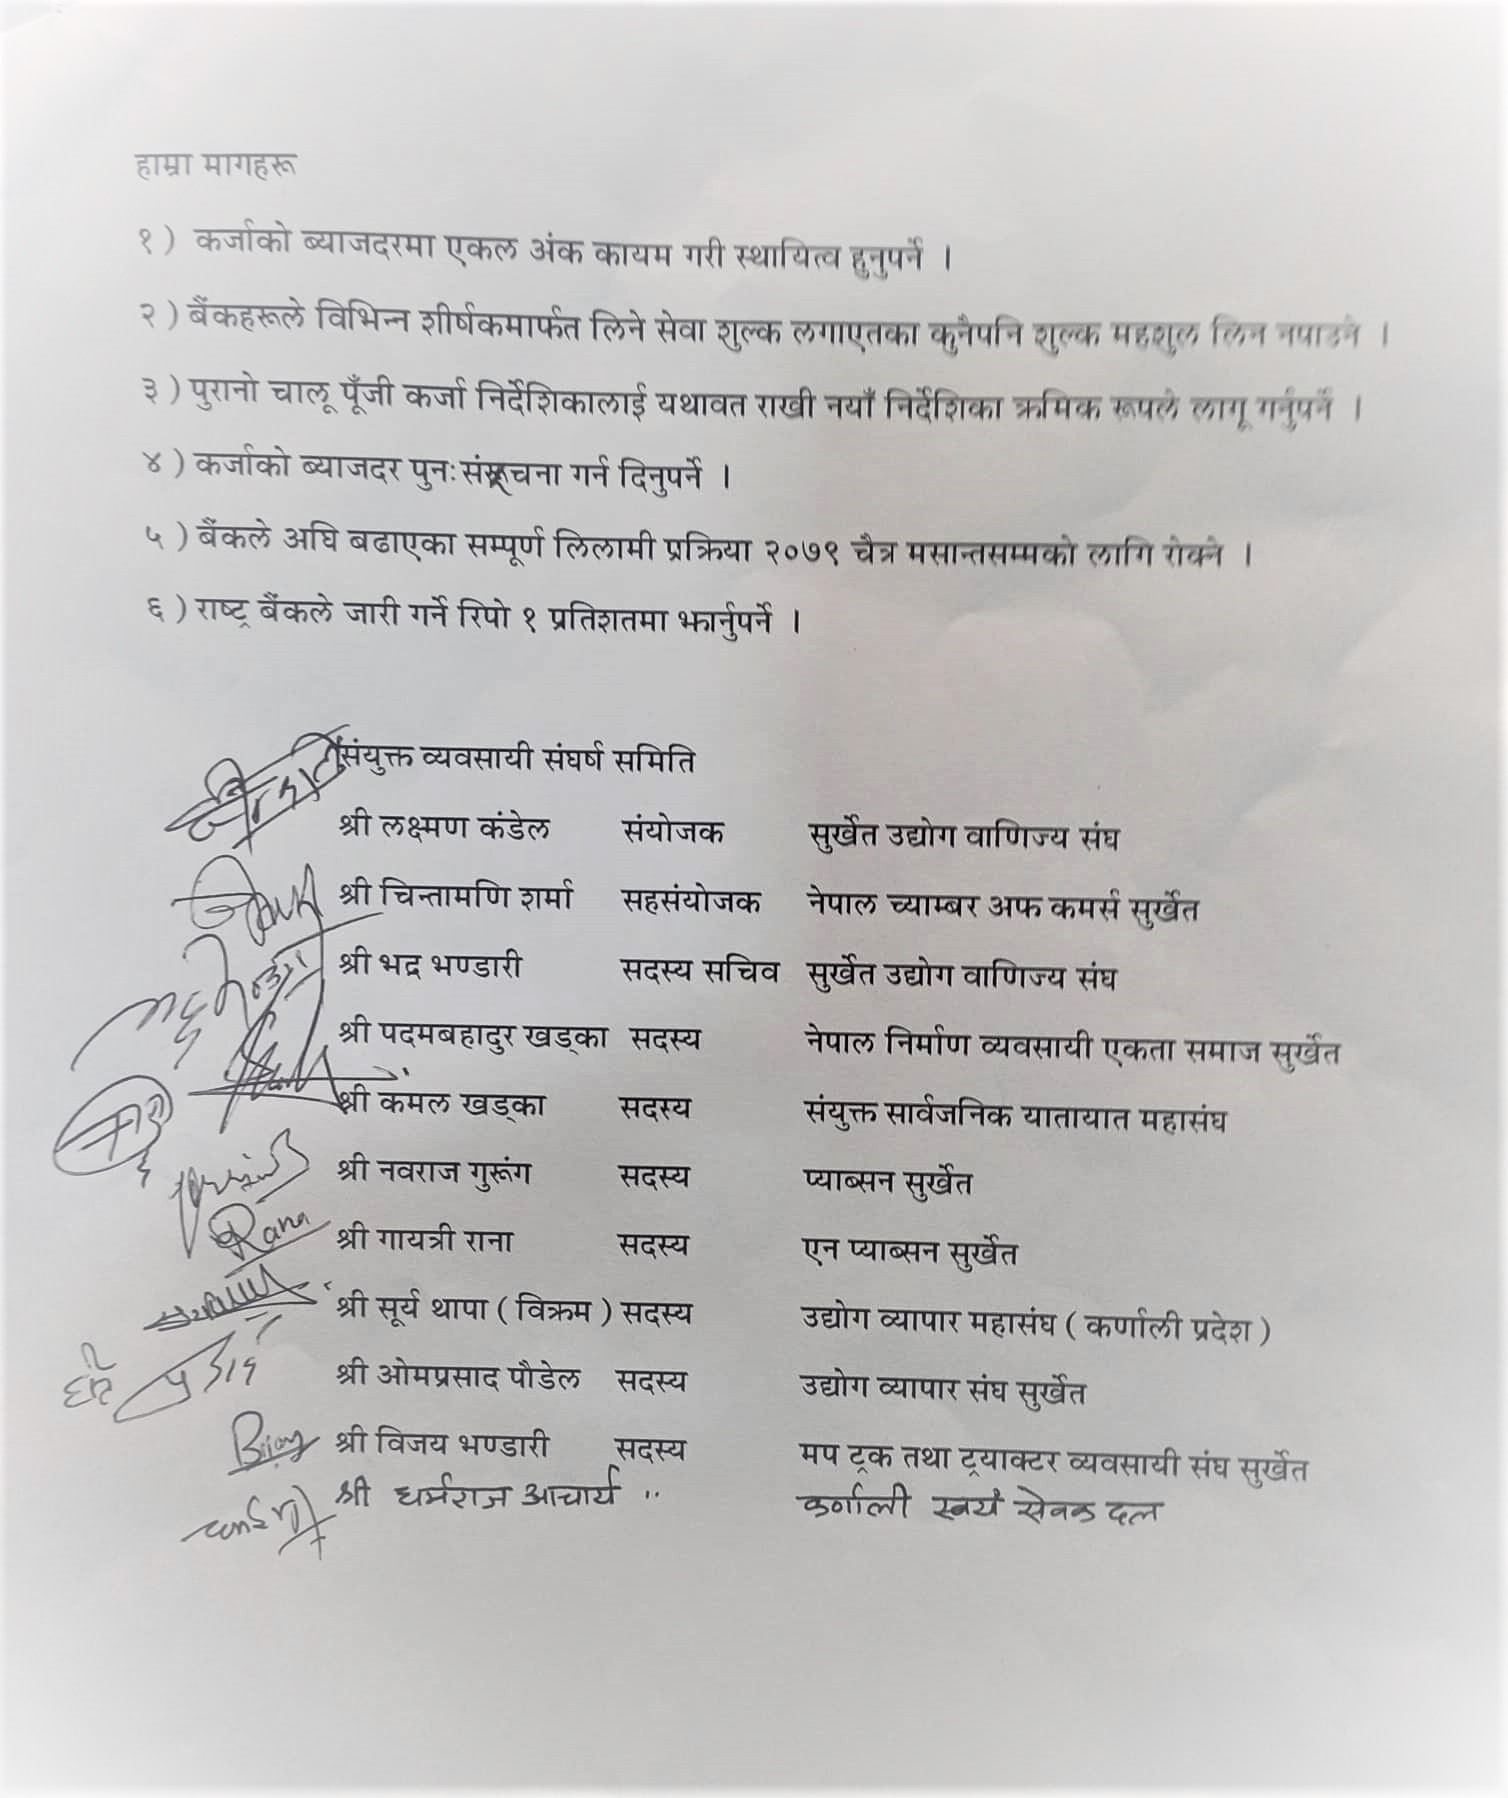 हाम्रा मागहरू
१ ) कर्जाको ब्याजदरमा एकल अंक कायम गरी स्थायित्व हुनुपर्ने ।
२ ) बैंकहरूले विभिन्न शीर्षकमार्फत लिने सेवा शुल्क लगाएतका कुनैपनि शुल्क महशुल लिन नपाउने ।
३ ) पुरानो चालू पूँजी कर्जा निर्देशिकालाई यथावत राखी नयाँ निर्देशिका क्रमिक रूपले लागू गर्नुपर्ने ।
४ ) कर्जाको ब्याजदर पुनः गर्न दिनुपर्ने ।
५ ) बैंकले अघि बढाएका सम्पूर्ण लिलामी प्रक्रिया २०७९ चैत्र मसान्तसम्मको लागि रोक्ने ।
६ ) राष्ट्र बैंकले जारी गर्ने रिपो १ प्रतिशतमा झार्नुपर्ने ।
संयुक्त व्यवसायी संघर्ष समिति
श्री लक्ष्मण कंडेल संयोजक सुर्खेत उद्योग वाणिज्य संघ
श्री चिन्तामणि शर्मा सहसंयोजक नेपाल च्याम्बर अफ कमर्स सुर्खेत
श्री भद्र भण्डारी सदस्य सचिव सुर्खेत उद्योग वाणिज्य संघ
श्री पदमबहादुर खड्का सदस्य नेपाल निर्माण व्यवसायी एकता समाज सुर्खेत
श्री कमल खड्का सदस्य संयुक्त सार्वजनिक यातायात महासंघ
श्री नवराज गुरूंग सदस्य प्याब्सन सुर्खेत
Rana श्री गायत्री राना सदस्य एन प्याब्सन सुर्खेत
श्री सूर्य थापा ( विक्रम ) सदस्य उद्योग व्यापार महासंघ ( कर्णाली प्रदेश )
श्री ओमप्रसाद पौडेल सदस्य उद्योग व्यापार संघ सुर्खेत
श्री विजय भण्डारी सदस्य मप ट्रक तथा ट्रयाक्टर व्यवसायी संघ सुर्खेत
श्री धर्मराज आचार्य ,, कर्णाली स्वयं सेवक दल